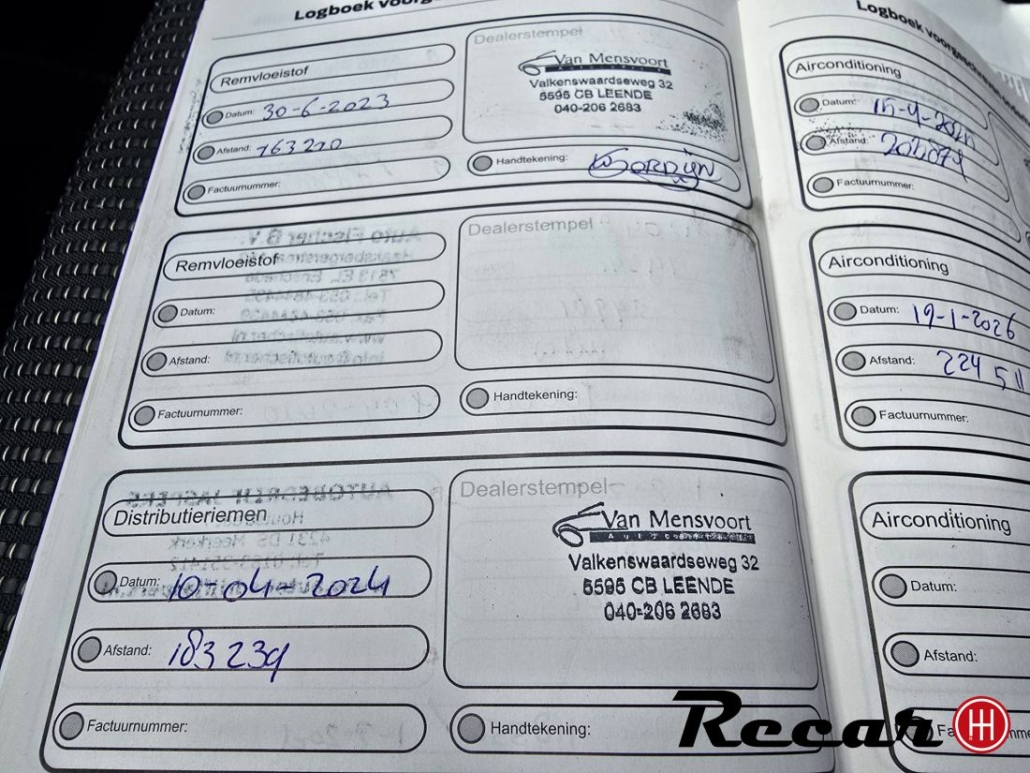 Logboek
Remvloeistof
Datum: 30-6-2023
Afstand: 163210
Factuurnummer:
Dealerstempel
Van Mensvoort
Valkenswaardseweg 32
5595 CB LEENDE
040-206 2683
Handtekening:
Remvloeistof
Datum:
Afstand:
Factuurnummer:
Dealerstempel
Handtekening:
Distributieriemen
Datum: 10-04-2024
Afstand: 183239
Factuurnummer:
Dealerstempel
Van Mensvoort
Valkenswaardseweg 32
5595 CB LEENDE
040-206 2683
Handtekening:
Logboek
Airconditioning
Datum:
Afstand:
Factuurnummer:
Airconditioning
Datum: 19-1-2026
Afstand: 224 511
Factuurnummer:
Airconditioning
Datum:
Afstand:
Recar